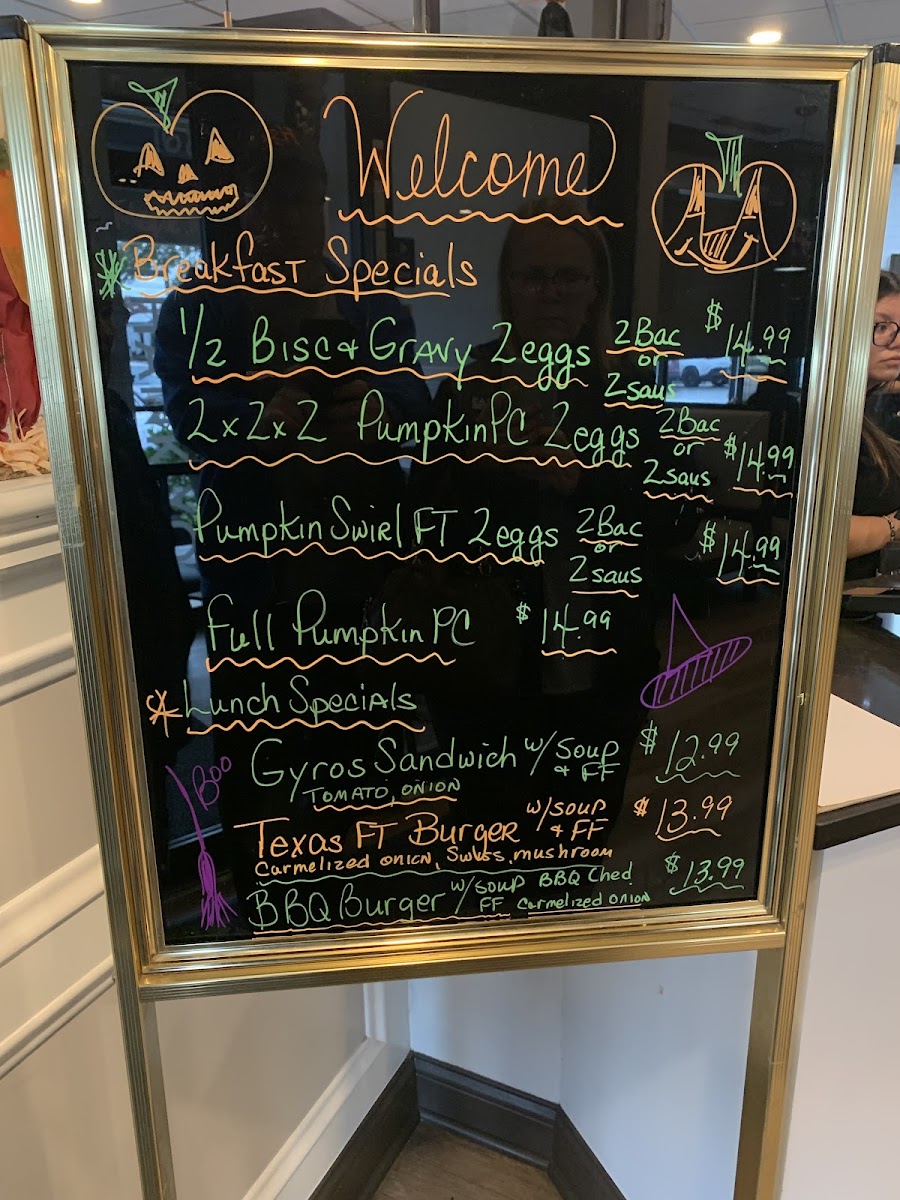 Welcome
Breakfast Specials
1/2 Bisc & Gravy 2eggs 2Bac or 2saus $14.99
2x2x2 Pumpkin PC 2eggs 2Bac or 2saus $14.99
Pumpkin Swirl FT 2eggs 2Bac or 2saus $14.99
Full Pumpkin PC $14.99
Lunch Specials
Boo
Gyros Sandwich w/ Soup & FF $12.99
Tomato, onion
Texas FT Burger w/soup & FF $13.99
Carmelized onion, Swiss, mushroom
BBQ Burger w/soup FF BBQ Ched Carmelized onion $13.99